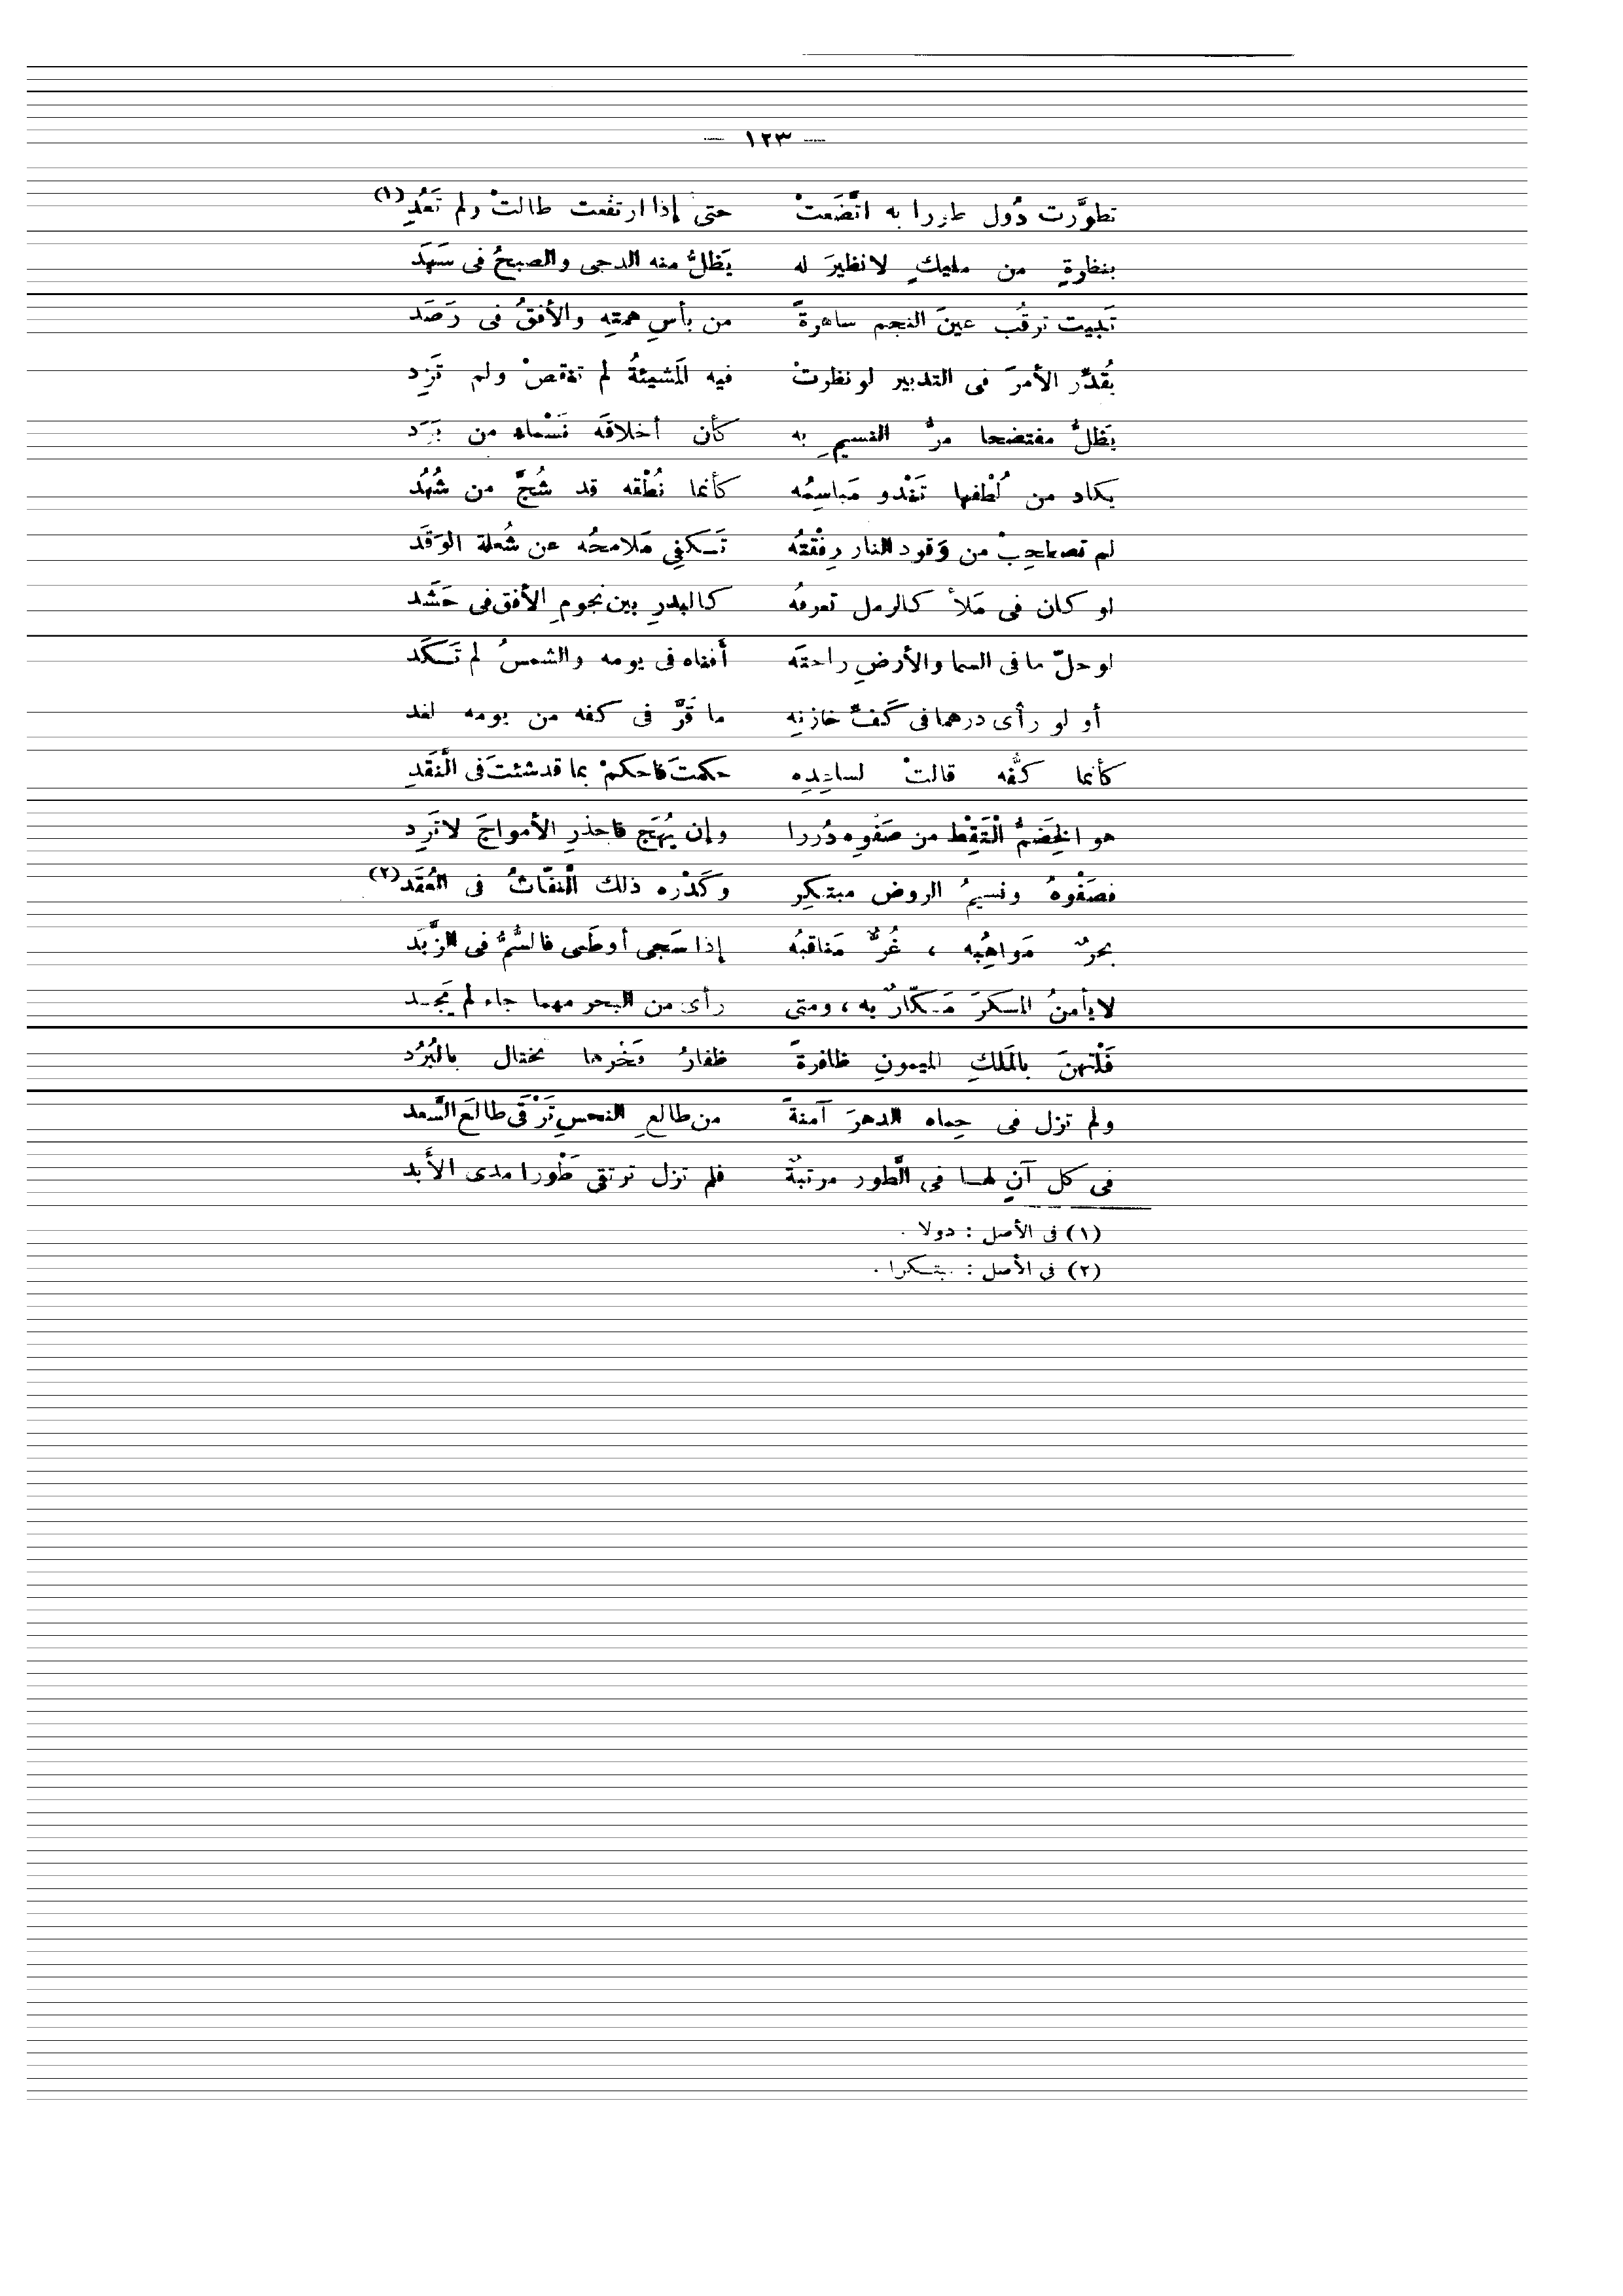 — ١٢٣ —
تطوَّرت دُول طورا به اتَّضَعتْ حتى إذا ارتفعت طالتْ ولم تَعُدِ (١)
بنظرةٍ من مليكٍ لا نظيرَ له يَظلُّ منه الدجى والصبحُ فى سَهَد
تَبيت ترقُب عينَ النجم ساهرةً من بأسِ همته والأفقُ فى رَصَد
يُقدِّر الأمرَ فى التدبير لو نظرتْ فيه المَشيئةُ لم تنقصْ ولم تَزِد
يَظلُّ مفتضحا مرُّ النسيمِ به كأن أخلاقَه نَسْماه من بَرَد
يكاد من لُطْفها تَغْدو مَباسِمُه كأنما نُطْقه قد شُجَّ من شُهُد
لم تصطحِبْ من وَقود النار رِفْقتُه تَكفِى مَلامحُه عن شُعلة الوَقَد
لو كان فى مَلأ كالرمل تعرفُه كالبدرِ بين نجومِ الأفق فى حَشَد
لو حلّ ما فى السما والأرضِ راحتَه أفناه فى يومه والشمسُ لم تَكَد
أو لو رأى درهما فى كَفِّ خازنِه ما قَرَّ فى كفه من يومه لغد
كأنما كفُّه قالتْ لساعِدِه حكمتَ فاحكمْ بما قد شئتَ فى النَّقَدِ
هو الخِضَمُّ الْتَقِطْ من صَفْوِه دُررا وإن يُهَج فاحذرِ الأمواجَ لا تَرِد
فصَفْوهُ ونسيمُ الروض مبتكِر وكَدْره ذلك النفّاثُ فى العُقَد (٢)
بحرٌ مَواهِبُه ، غُرٌّ مَناقبُه إذا سَجى أو طَمى فالسُّمُّ فى الزَّبَد
لا يأمنُ المكرَ مَكّارٌ به ، ومتى رأى من البحر مهما جاء لم يَجِد
فَلْتهنَ بالمَلكِ الميمونِ ظافرةً ظفارُ فَخْرها تختال بالبُرُد
ولم تزل فى حِماه الدهرَ آمنةً من طالعِ النحسِ تَرْقَى طالعَ السَّعد
فى كل آنٍ لها فى الطَّور مرتبةٌ فلم تزل ترتقى طَوْرا مدى الأَبد
(١) فى الأصل : دولا .
(٢) فى الأصل : مبتكرا .